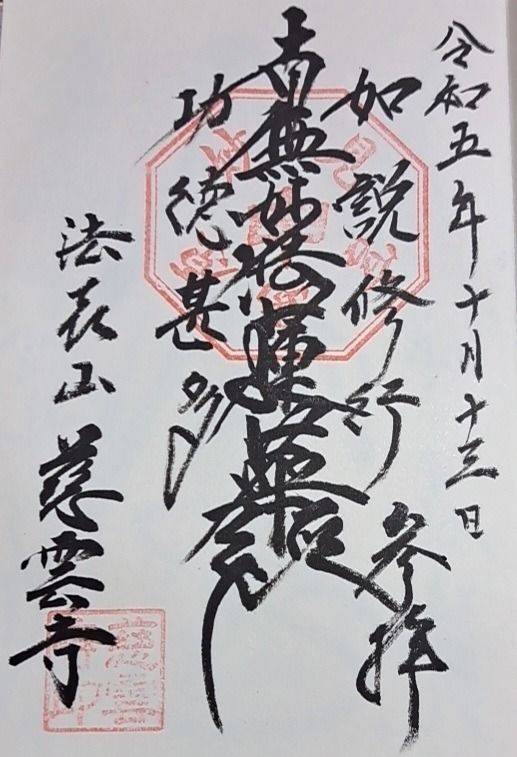 令和五年十月十三日
参拝
如説修行
南無妙法蓮華経
功徳甚多
法表山 慈雲寺